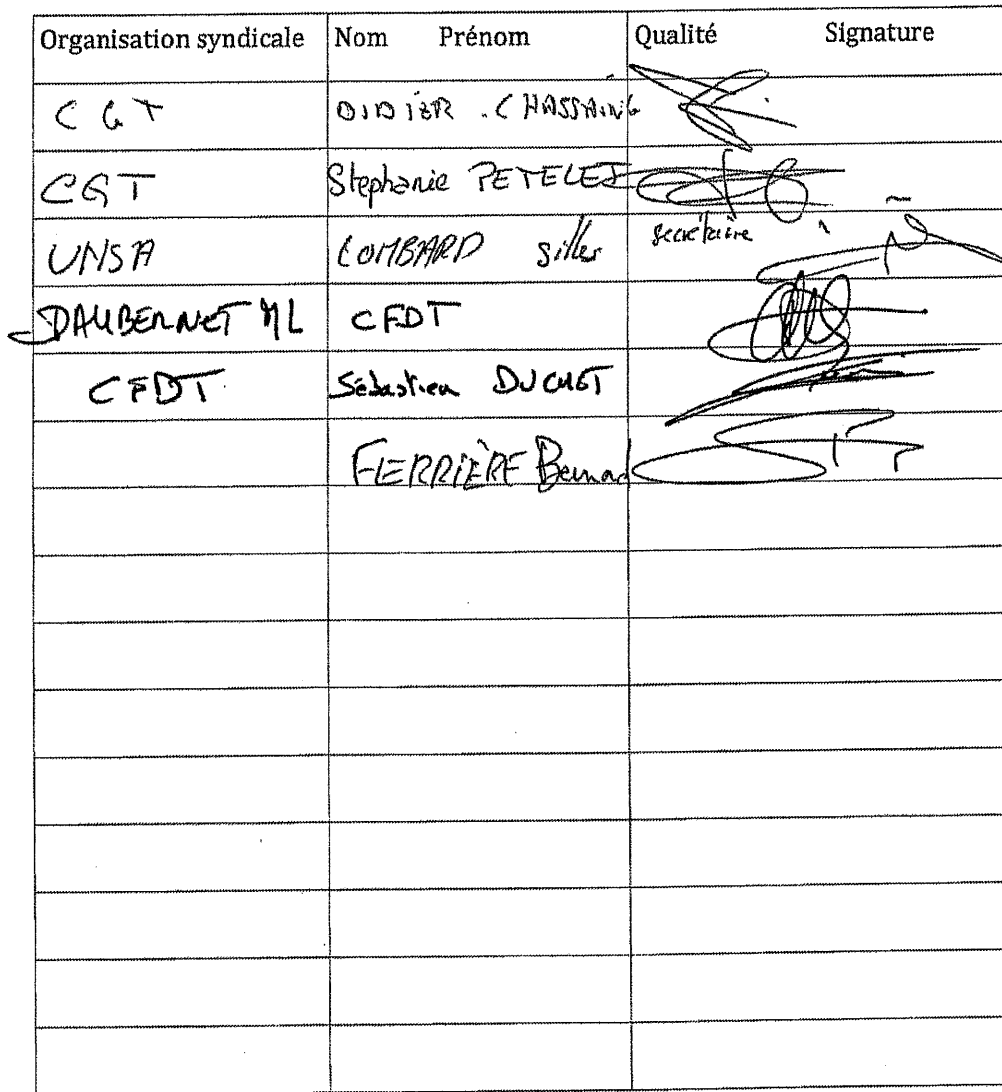 Organisation syndicale Nom Prénom Qualité Signature
CGT DIDIER . CHASSAING
CGT Stephanie PETELET
UNSA LOMBARD Gilles secrétaire
DAUBERNET ML CFDT
CFDT Sébastien DUCHET
FERRIÈRE Bernard